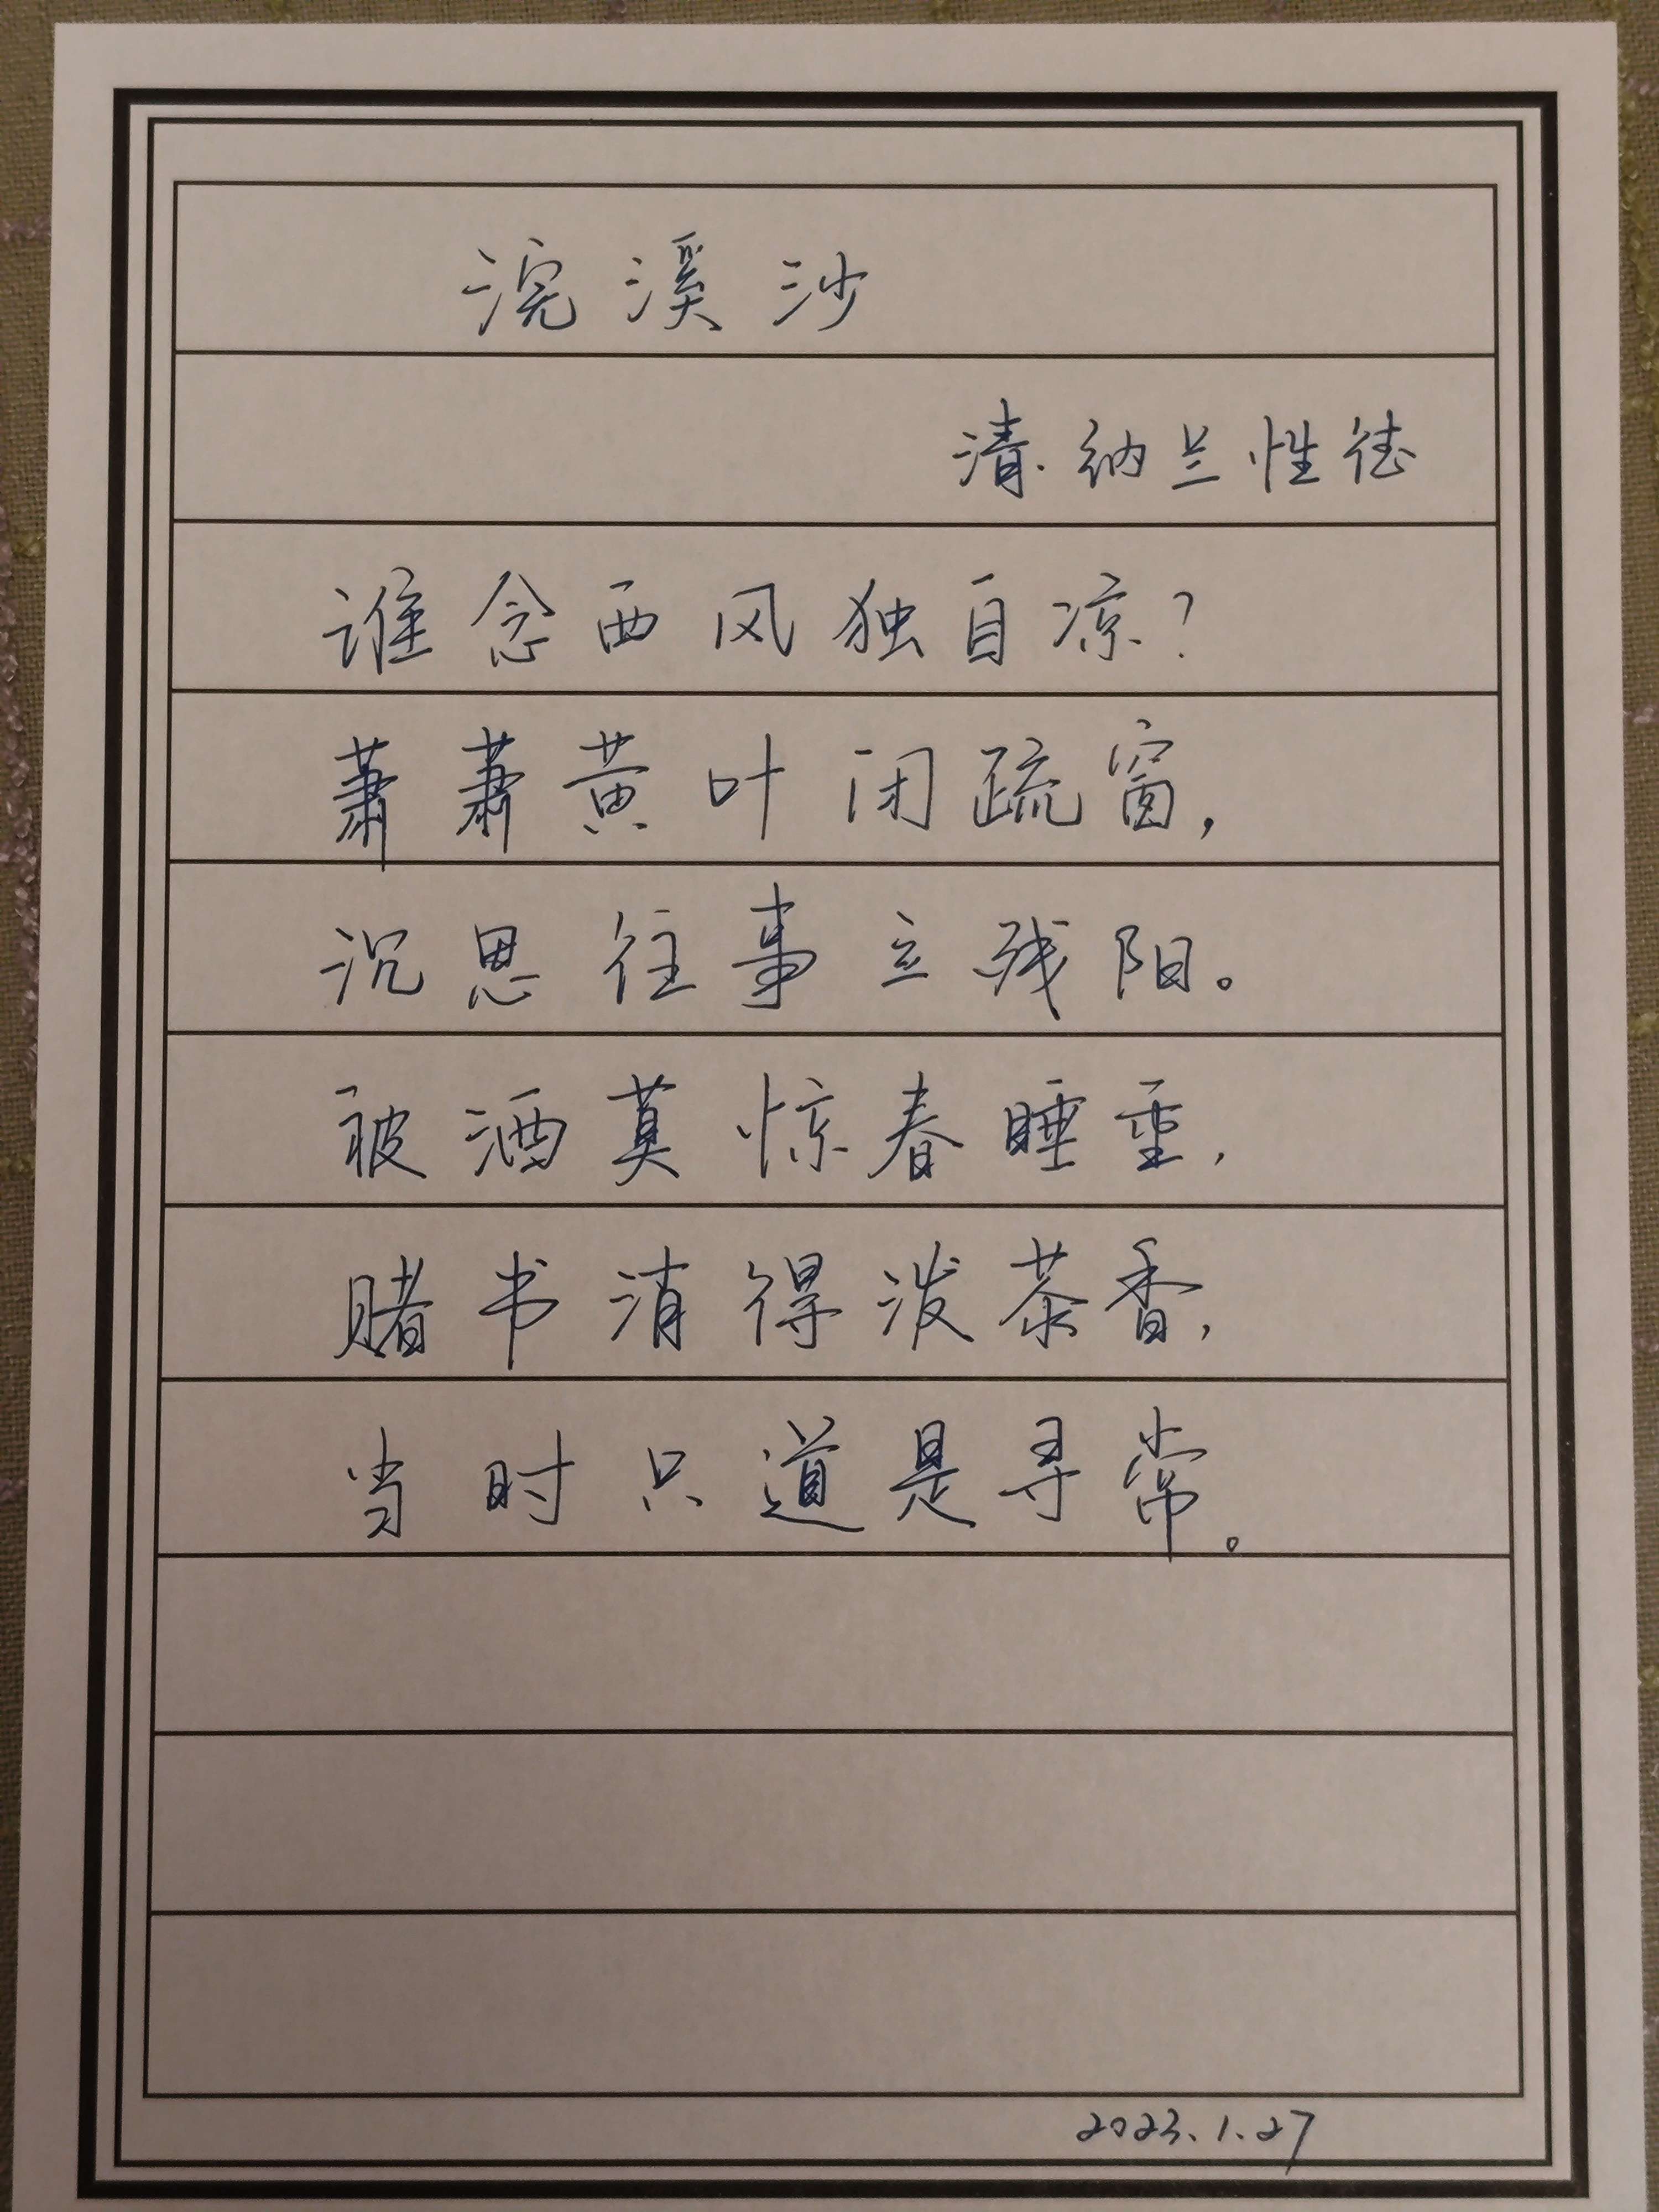 浣溪沙
清·纳兰性德
谁念西风独自凉?
萧萧黄叶闭疏窗,
沉思往事立残阳。
被酒莫惊春睡重,
赌书消得泼茶香,
当时只道是寻常。
2023.1.27